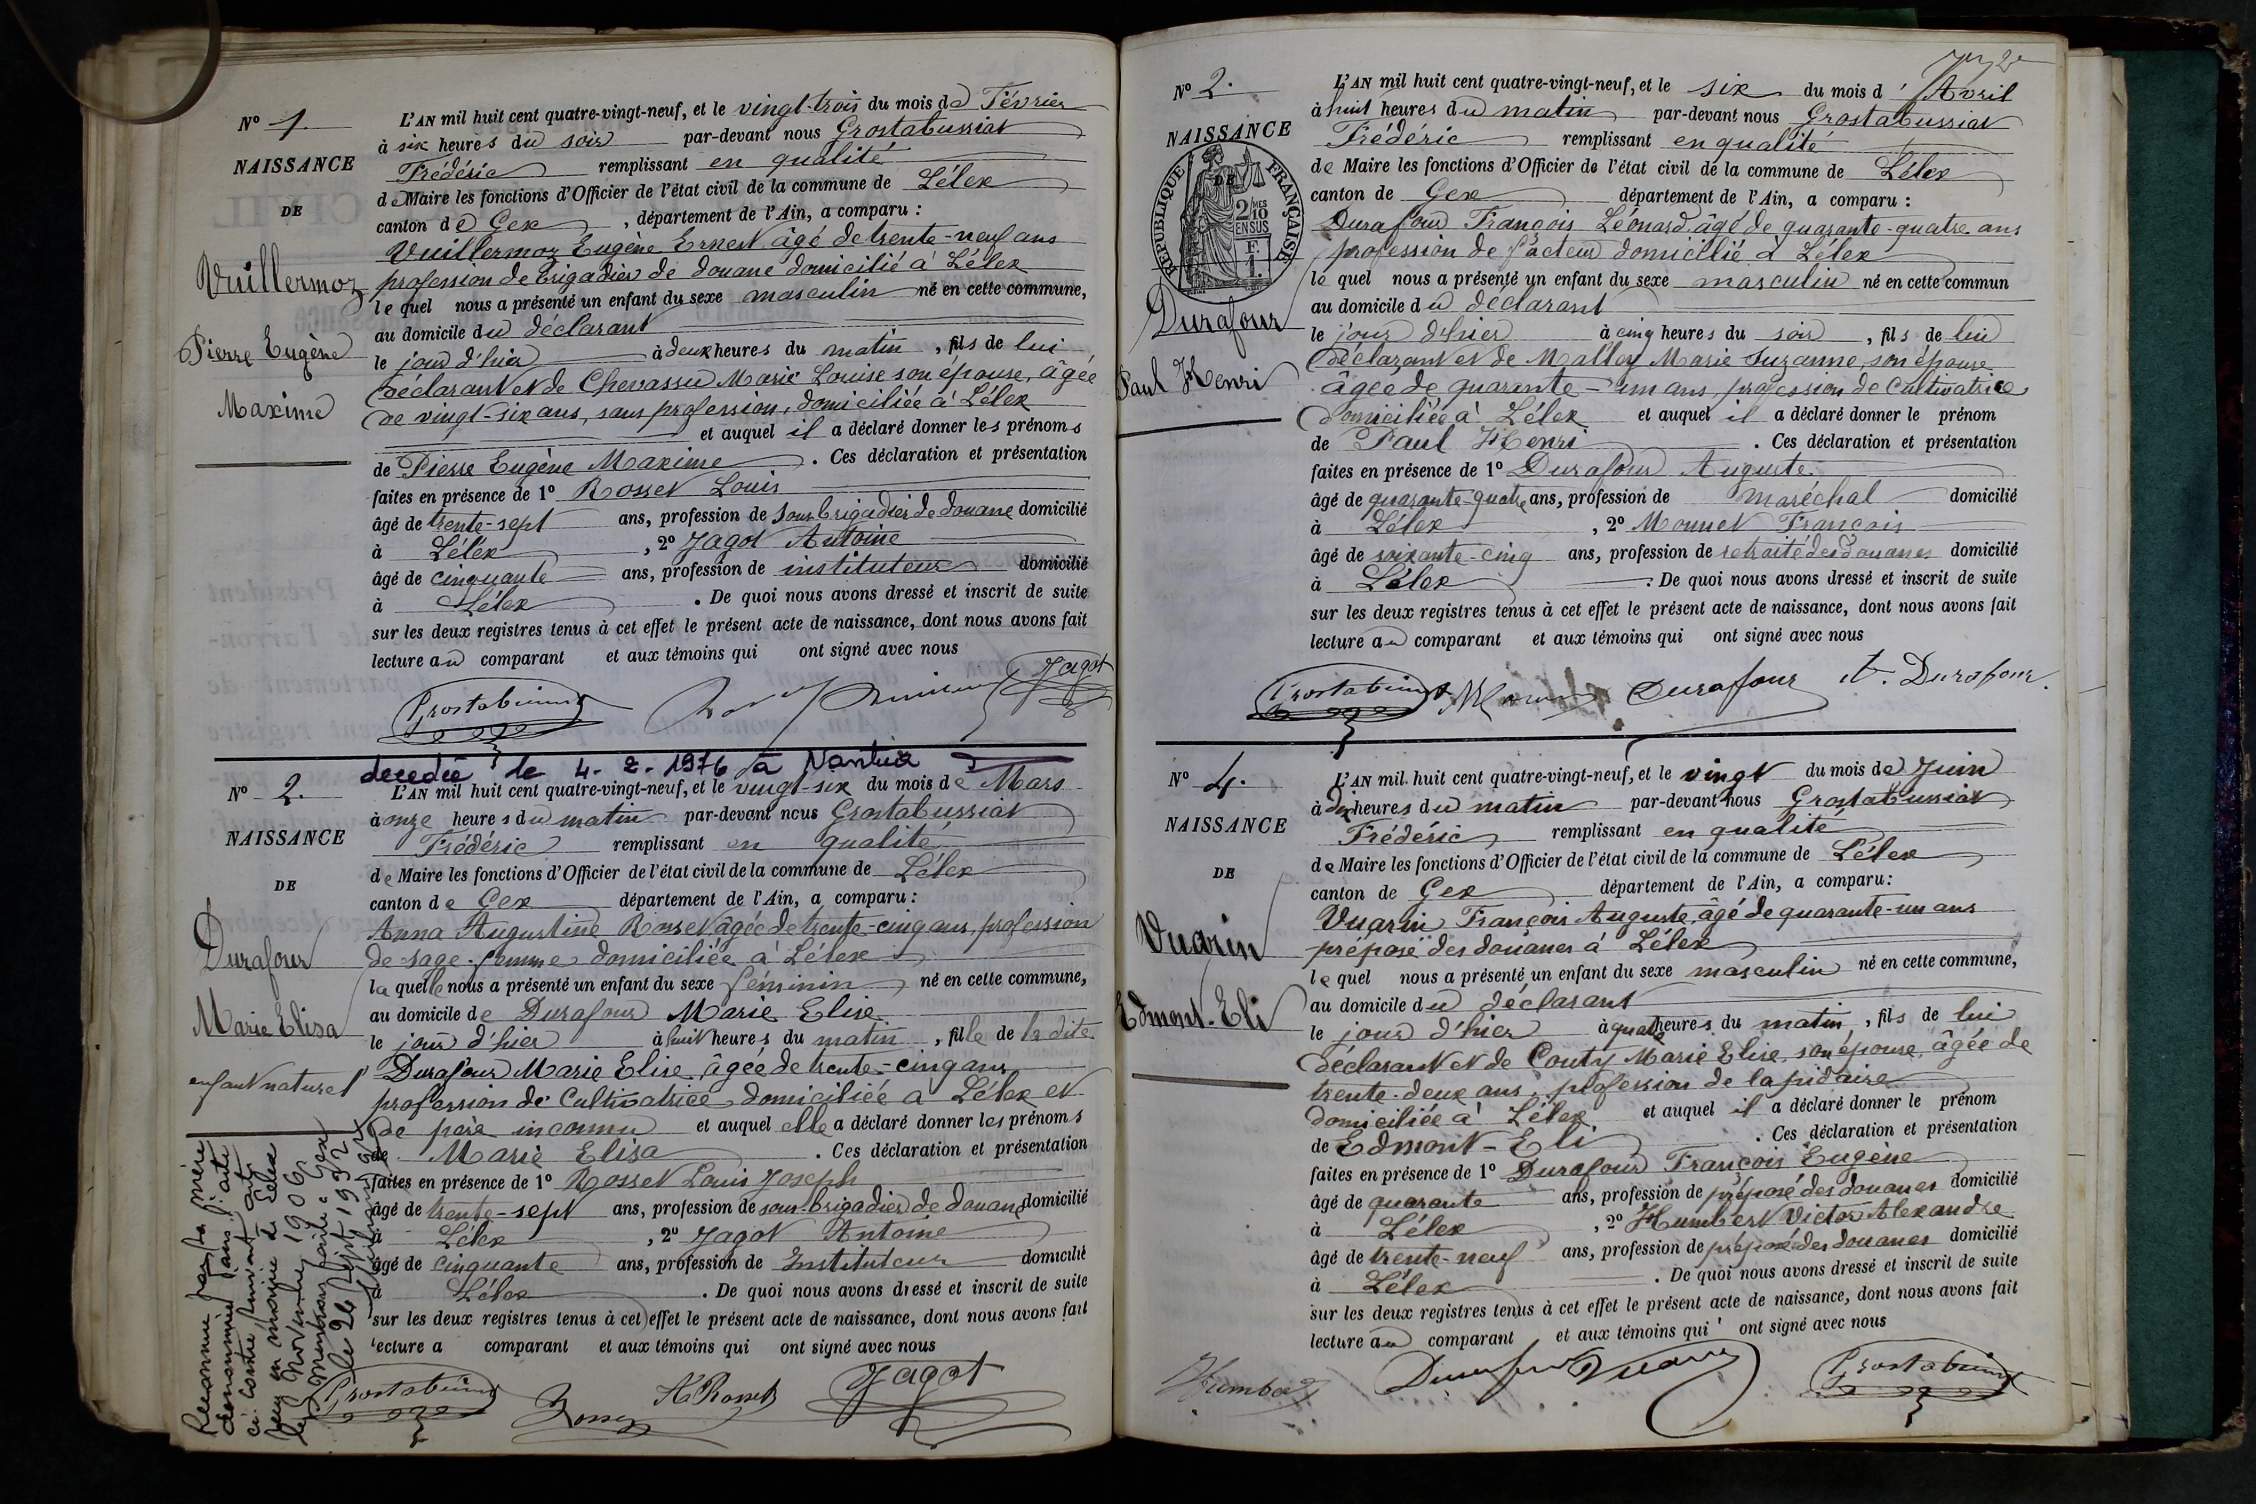 N° 1.
NAISSANCE
DE
Vuillermoz
Pierre Eugène
Maxime
L'AN mil huit cent quatre-vingt-neuf, et le vingt-trois du mois de Février
à six heures du soir par-devant nous Grostabussiat
Frédéric remplissant en qualité
de Maire les fonctions d'Officier de l'état civil de la commune de Lélex
canton de Gex, département de l'Ain, a comparu :
Vuillermoz Eugène Ernest âgé de trente-neuf ans
profession de brigadier de douane domicilié à Lélex
le quel nous a présenté un enfant du sexe masculin né en cette commune,
au domicile du déclarant
le jour d'hier à deux heures du matin, fils de lui
déclarant et de Chevassu Marie Louise son épouse, âgée
de vingt-six ans, sans profession, domiciliée à Lélex
et auquel il a déclaré donner les prénoms
de Pierre Eugène Maxime. Ces déclaration et présentation
faites en présence de 1° Rosset Louis
âgé de trente-sept ans, profession de sous-brigadier de douane domicilié
à Lélex, 2° Jagot Antoine
âgé de cinquante ans, profession de instituteur domicilié
à Lélex. De quoi nous avons dressé et inscrit de suite
sur les deux registres tenus à cet effet le présent acte de naissance, dont nous avons fait
lecture au comparant et aux témoins qui ont signé avec nous
Jagot
decedée le 4-2-1976 à Nantua
N° 2.
NAISSANCE
DE
Durafour
Marie Elisa
enfant naturel
L'AN mil huit cent quatre-vingt-neuf, et le vingt-six du mois de Mars
à onze heures du matin par-devant nous Grostabussiat
Frédéric remplissant en qualité
de Maire les fonctions d'Officier de l'état civil de la commune de Lélex
canton de Gex département de l'Ain, a comparu :
Anna Augustine Rosset âgée de trente-cinq ans, profession
de sage-femme domiciliée à Lélex
la quelle nous a présenté un enfant du sexe féminin né en cette commune,
au domicile de Durafour Marie Elise
le jour d'hier à huit heures du matin, fille de la dite
Durafour Marie Elise âgée de trente-cinq ans
profession de cultivatrice domiciliée à Lélex et
de père inconnu et auquel elle a déclaré donner les prénoms
de Marie Elisa. Ces déclaration et présentation
faites en présence de 1° Rosset Louis Joseph
âgé de trente-sept ans, profession de sous-brigadier de douane domicilié
à Lélex, 2° Jagot Antoine
âgé de cinquante ans, profession de Instituteur domicilié
à Lélex. De quoi nous avons dressé et inscrit de suite
sur les deux registres tenus à cet effet le présent acte de naissance, dont nous avons fait
lecture a comparant et aux témoins qui ont signé avec nous
Reconnue par sa mère
dénommée dans l'acte
ci-contre suivant acte
reçu en mairie de Lélex
le novembre 1906
Mention faite à Gex
le 26 Sept 1932
Rosset A Rosset Jagot
N° 2.
NAISSANCE
RÉPUBLIQUE FRANÇAISE
DE
2 MES
10
EN SUS
F.
1.
Durafour
Paul Henri
L'AN mil huit cent quatre-vingt-neuf, et le six du mois d'Avril
à huit heures du matin par-devant nous Grostabussiat
Frédéric remplissant en qualité
de Maire les fonctions d'Officier de l'état civil de la commune de Lélex
canton de Gex département de l'Ain, a comparu :
Durafour François Léonard âgé de quarante-quatre ans
profession de facteur domicilié à Lélex
le quel nous a présenté un enfant du sexe masculin né en cette commun
au domicile du déclarant
le jour d'hier à cinq heures du soir, fils de lui
déclarant et de Malley Marie Suzanne, son épouse
âgée de quarante-un ans, profession de cultivatrice
domiciliée à Lélex et auquel il a déclaré donner le prénom
de Paul Henri. Ces déclaration et présentation
faites en présence de 1° Durafour Auguste
âgé de quarante-quatre ans, profession de maréchal domicilié
à Lélex, 2° Mounet François
âgé de soixante-cinq ans, profession de retraité des douanes domicilié
à Lélex. De quoi nous avons dressé et inscrit de suite
sur les deux registres tenus à cet effet le présent acte de naissance, dont nous avons fait
lecture au comparant et aux témoins qui ont signé avec nous
Durafour A. Durafour.
N° 4.
NAISSANCE
DE
Vuarin
Edmont-Eli
L'AN mil huit cent quatre-vingt-neuf, et le vingt du mois de Juin
à dix heures du matin par-devant nous Grostabussiat
Frédéric remplissant en qualité
de Maire les fonctions d'Officier de l'état civil de la commune de Lélex
canton de Gex département de l'Ain, a comparu :
Vuarin François Auguste, âgé de quarante-un ans
préposé des douanes à Lélex
le quel nous a présenté un enfant du sexe masculin né en cette commune,
au domicile du déclarant
le jour d'hier à quatre heures du matin, fils de lui
déclarant et de Couty Marie Elise, son épouse, âgée de
trente-deux ans, profession de lapidaire
domiciliée à Lélex. et auquel il a déclaré donner le prénom
de Edmont-Eli. Ces déclaration et présentation
faites en présence de 1° Durafour François Eugène
âgé de quarante ans, profession de préposé des douanes domicilié
à Lélex, 2° Humbert Victor Alexandre
âgé de trente-neuf ans, profession de préposé des douanes domicilié
à Lélex. De quoi nous avons dressé et inscrit de suite
sur les deux registres tenus à cet effet le présent acte de naissance, dont nous avons fait
lecture au comparant et aux témoins qui ont signé avec nous
Humbert Durafour Vuarin